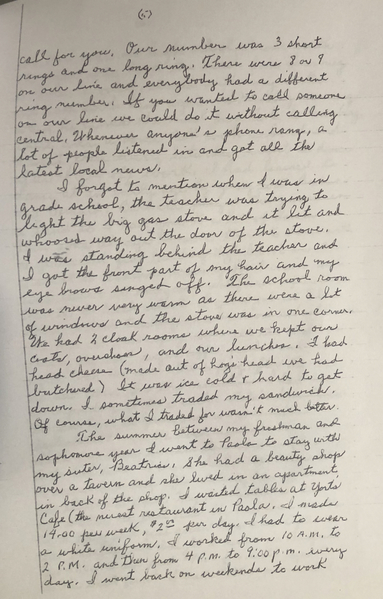 (6)
call for you. Our number was 3 short
rings and one long ring. There were 8 or 9
on our line and everybody had a different
ring number. If you wanted to call someone
on our line we could do it without calling
central. Whenever anyone's phone rang, a
lot of people listened in and got all the
latest local news.
I forgot to mention when I was in
grade school, the teacher was trying to
light the big gas stove and it lit and
whoosed way out the door of the stove.
I was standing behind the teacher and
I got the front part of my hair and my
eye brows singed off. The school room
was never very warm as there were a lot
of windows and the stove was in one corner.
We had 2 cloak rooms where we kept our
coats, overshoes, and our lunches. I had
head cheese (made out of hog's head we had
butchered) It was ice cold & hard to get
down. I sometimes traded my sandwich.
Of course, what I traded for wasn't much better.
The summer between my freshman and
sophomore year I went to Paola to stay with
my sister, Beatrice. She had a beauty shop
over a tavern and she lived in an apartment
in back of the shop. I waited tables at
Cafe (the nicest restaurant in Paola. I made
14.00 per week, $2.00 per day. I had to wear
a white uniform. I worked from 10 A.M. to
2 P.M. and then from 4 P.M. to 9:00 p.m. every
day. I went back on weekends to work